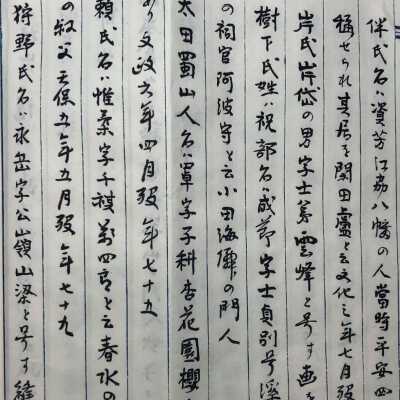 伴氏名ハ資芳江刕八幡の人當時平安四
稱せられ其居を閑田廬と云文化三年七月歿
岸氏岸岱の男字士篤雲峰と号す画を
樹下氏姓ハ祝部名ハ成節字士貞別号溪
の祠官阿波守と云小田海僊の門人
太田蜀山人名ハ覃字子耜杏花園櫻
あり文政六年四月歿年七十五
頼氏名ハ惟柔字千祺萬四郎と云春水の
の叔父天保五年五月歿年七十九
狩野氏名ハ永岳字公嶺山梁と号す縫